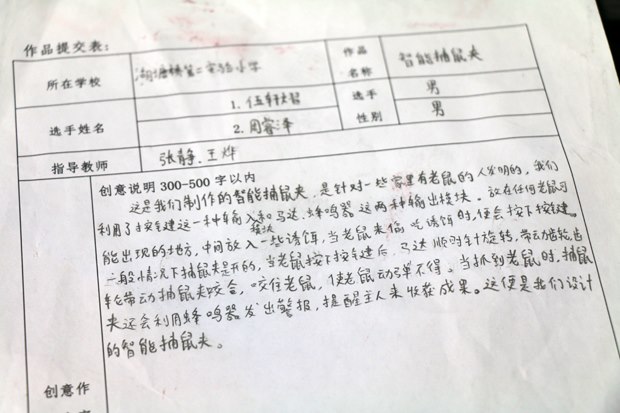 作品提交表：
所在学校 湖塘桥第二实验小学 作品名称 智能捕鼠夹
选手姓名 1. 伍轩 选手性别 男
2. 周睿泽 男
指导教师 张静、王烨
创意说明300-500字以内
这是我们制作的智能捕鼠夹，是针对一些家里有老鼠的人发明的，我们
利用了按键这一种输入模块和马达、蜂鸣器这两种输出模块。放在任何老鼠可
能出现的地方，中间放入一些诱饵，当老鼠来偷吃诱饵时，便会按下按键。
一般情况下捕鼠夹是开的，当老鼠按下按键后，马达顺时针旋转，带动齿轮，齿
轮带动捕鼠夹咬合，咬住老鼠，使老鼠动弹不得。当抓到老鼠时，捕鼠
夹还会利用蜂鸣器发出警报，提醒主人来收获成果。这便是我们设计
的智能捕鼠夹。
创意作